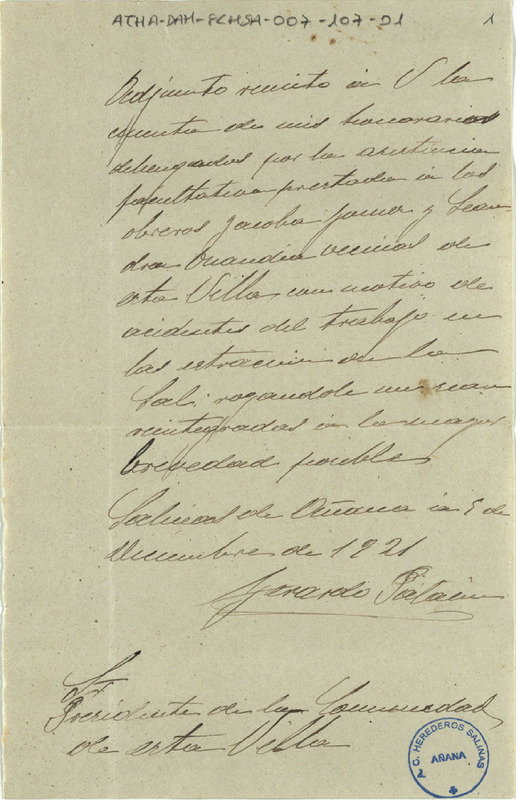 ATHA-DAH-FCHSA-007-107-01
1
Adjunto remito à V la
cuenta de mis honorarios
debengados por la asistencia
facultativa prestada a los
obreros Jacoba y Lean-
dra vecinas de
esta Villa con motivo de
acidentes del trabajo en
las estración de la
Sal; rogandole me sean
reintegradas à la mayor
brevedad posible
Salinas de Añana à 5 de
Diciembre de 1921
Gerardo
Sr
Presidente de la Comunidad
de esta Villa
C. HEREDEROS SALINAS
AÑANA